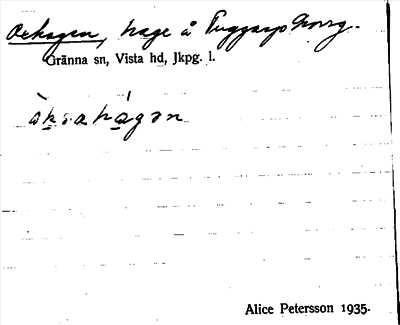 Oxhagen, hage å Tuggarp Norrg.
Gränna sn, Vista hd, Jkpg. l.
Alice Petersson 1935.